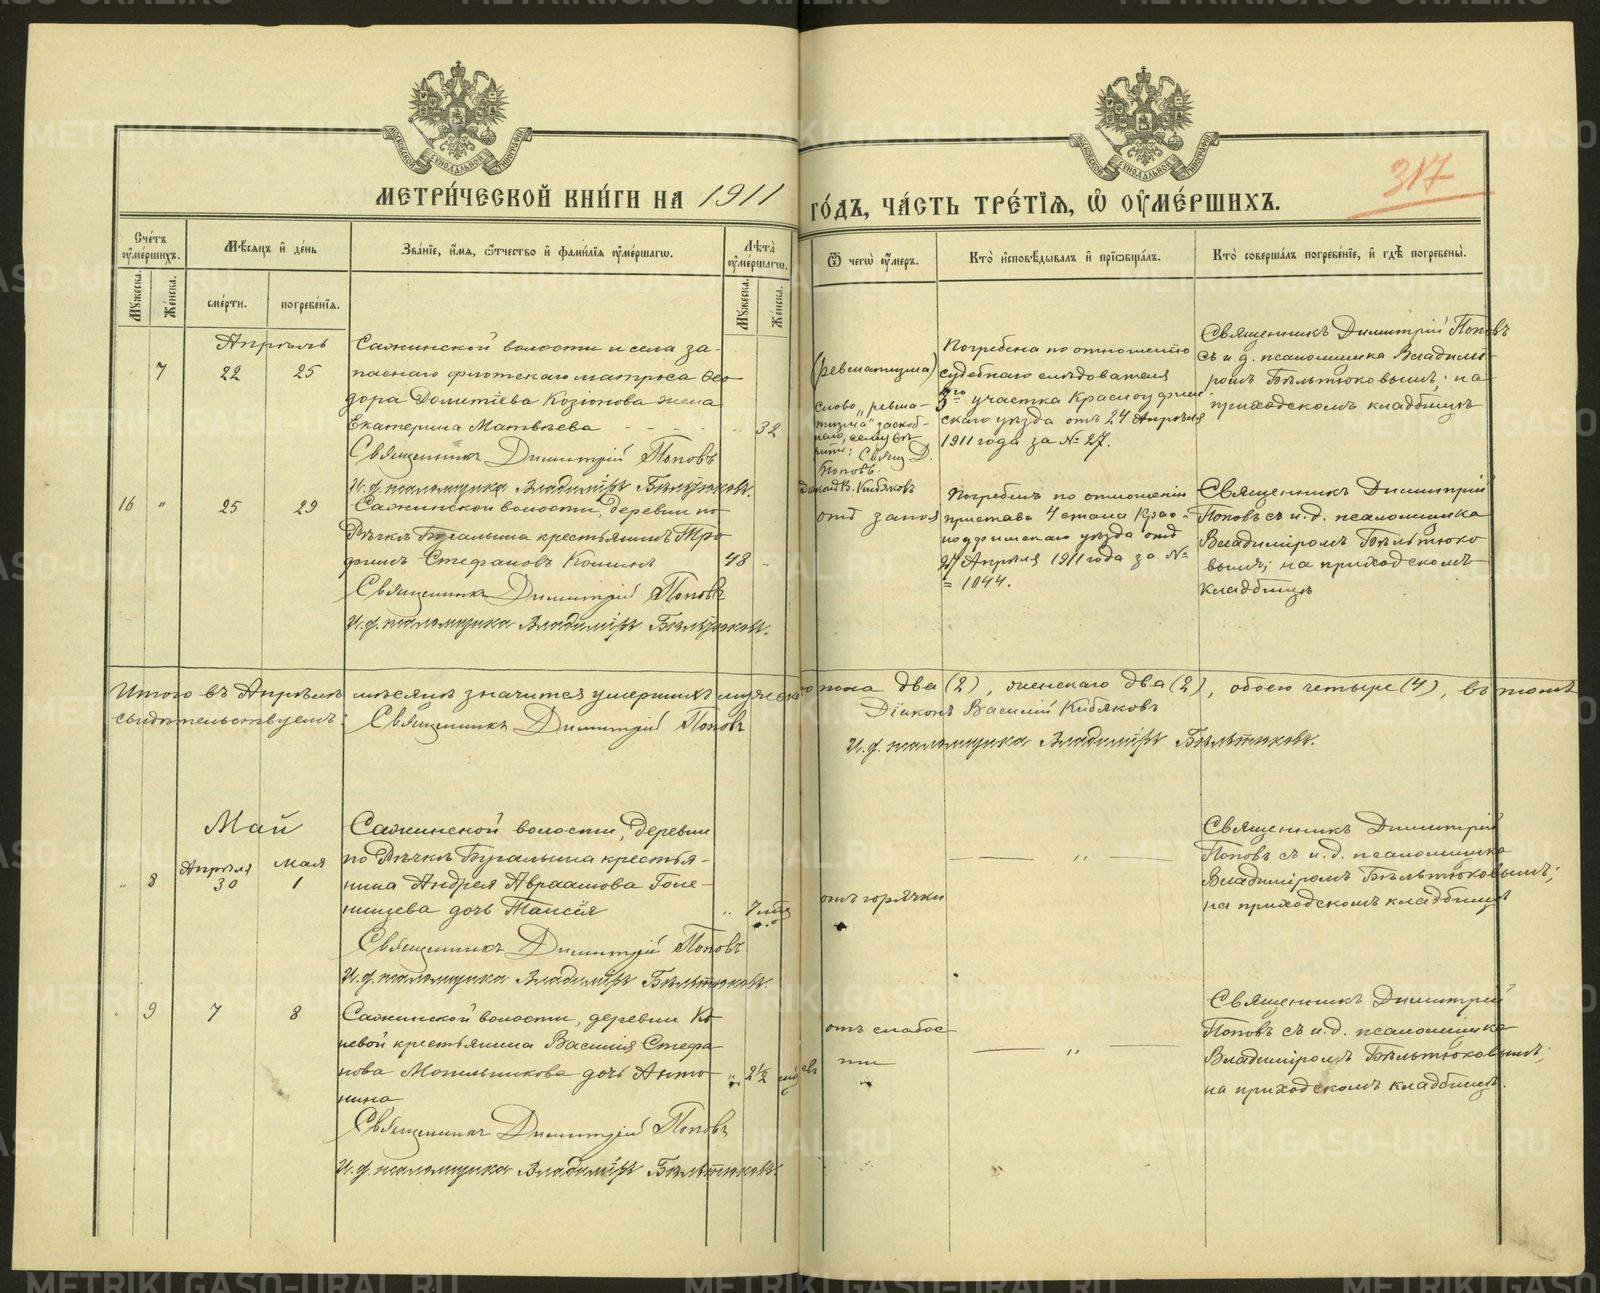 МЕТРИ́ЧЕСКОЙ КНИ́ГИ НА 1911 ГО́ДЪ, ЧА́СТЬ ТРЕ́ТІѦ, Ѡ ОУМЕ́РШИХЪ.
317
Сче́тъ оуме́ршихъ.
Мꙋжеска.
Же́нска.
Мѣ́сяцъ и де́нь
сме́рти.
погребе́нія.
Зва́ніе, и́мя, ѻ҆тчество и фами́лія оуме́ршагѡ.
Лѣ́та оуме́ршагѡ.
Мꙋжеска.
Же́нска.
Ѿ чегѡ̀ оу́меръ.
Кто̀ и҆сповѣ́дывалъ и прїѡбща́лъ.
Кто̀ соверша́лъ погребе́ніе, и гдѣ̀ погребены̀.
Апрѣль
7 22 25
Сажинской волости и села за-
паснаго флотскаго матроса Ѳео
дора Дометіева Козюнова жена
Екатерина Матвѣева 32
Священникъ Димитрій Поповъ
И. д. псаломщика Владиміръ Бѣльтюковъ.
(ревматизма)
слово „ревма-
тизма" заскоб-
Свящ. Д.
Поповъ.
Діаконъ В. Кибяковъ
Погребена по отношенію
судебнаго слѣдователя
3го участка Красноуфим-
скаго уѣзда отъ 24 Апрѣля
1911 года за № 27.
Священникъ Димитрій Поповъ
съ и. д. псаломщика Владимі-
ромъ Бѣльтюковымъ; на
приходскомъ кладбищѣ
16 „ 25 29
Сажинской волости, деревни по
Рѣчкѣ Бугалыша крестьянинъ Тро
фимъ Стефановъ Кошинъ 48 „
Священникъ Димитрій Поповъ
И. д. псаломщика Владиміръ Бѣльтюковъ.
отъ запоя
Погребенъ по отношенію
пристава 4 стана Крас-
ноуфимскаго уѣзда отъ
27 Апрѣля 1911 года за №
= 1044.
Священникъ Димитрій
Поповъ съ и. д. псаломщика
Владиміромъ Бѣльтюко
вымъ; на приходскомъ
кладбищѣ
Итого въ Апрѣлѣ мѣсяцѣ значится умершихъ мужескаго пола два (2), женскаго два (2), обоего четыре (4), въ томъ
свидѣтельствуемъ: Священникъ Димитрій Поповъ
Діаконъ Василій Кибяковъ
И. д. псаломщика Владиміръ Бѣльтюковъ.
Май
„ 8 Апрѣля 30 Мая 1
Сажинской волости, деревни
по Рѣчкѣ Бугалыша крестья-
нина Андрея Авраамова Голе-
нищева дочь Таисія „ 7 мѣс
Священникъ Димитрій Поповъ
И. д. псаломщика Владиміръ Бѣльтюковъ.
отъ горячки
— „ —
Священникъ Димитрій
Поповъ съ и. д. псаломщика
Владиміромъ Бѣльтюковымъ;
на приходскомъ кладбищѣ
9 7 8
Сажинской волости, деревни Ко
невой крестьянина Василія Стефа
нова Мотыльникова дочь Анто „ 2½ мѣс
нина
Священникъ Димитрій Поповъ
И. д. псаломщика Владиміръ Бѣльтюковъ.
отъ слабос
ти
— „ —
Священникъ Димитрій
Поповъ съ и. д. псаломщика
Владиміромъ Бѣльтюковымъ;
на приходскомъ кладбищѣ.
METRIKI.GASO-URAL.RU